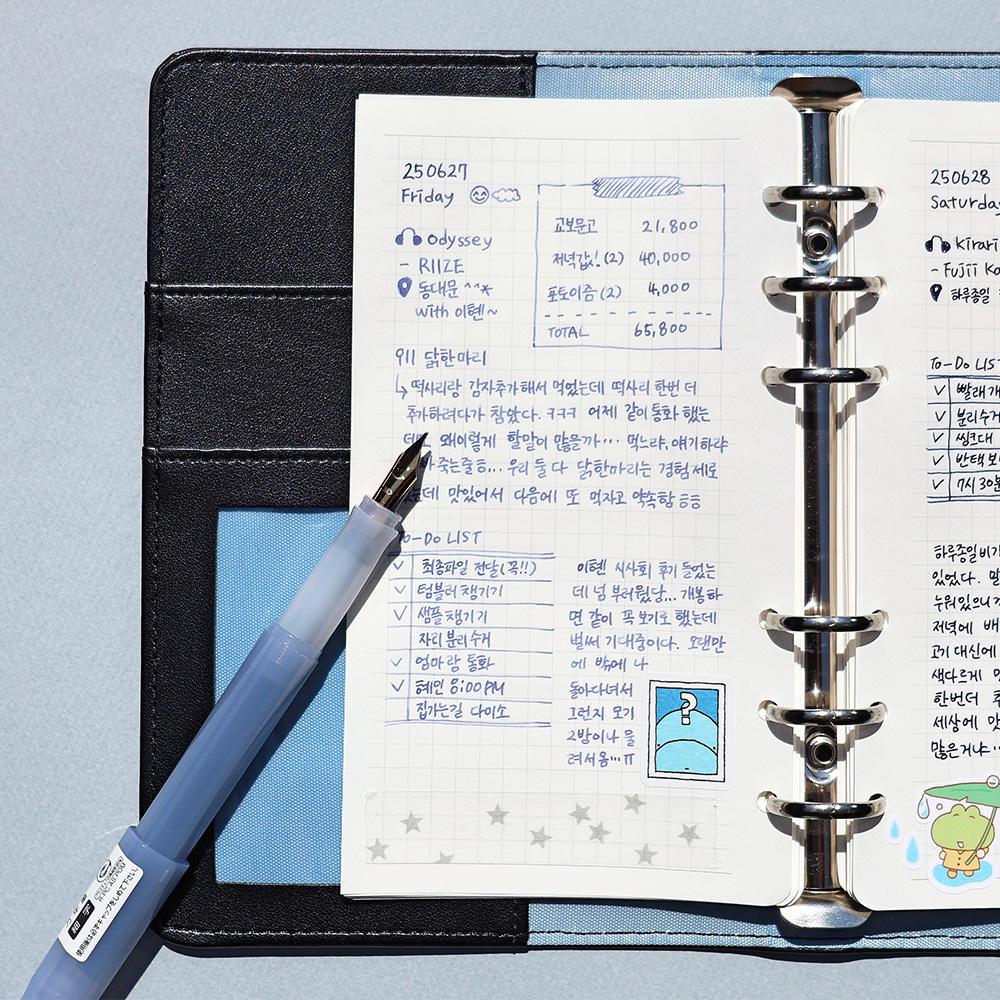 250627
Friday
odyssey
- RIIZE
동대문 ^^*
with 이헨~
교보문고 21,800
저녁값! (2) 40,000
포토이즘 (2) 4,000
TOTAL 65,800
911 닭한마리
↳ 떡사리랑 감자추가해서 먹었는데 떡사리 한번 더
추가하려다가 참았다. ㅋㅋㅋ 어제 같이 통화 했는
왜이렇게 할말이 많을까... 먹느랴, 얘기하랴
죽는줄ㅎ... 우리 둘 다 닭한마리는 경험제로
맛있어서 다음에 또 먹자고 약속함 ㅎㅎ
To-Do LIST
✓ 최종파일 전달(꼭!!)
✓ 텀블러 챙기기
✓ 샘플 챙기기
자리 분리수거
✓ 엄마랑 통화
✓ 혜인 8:00PM
집가는길 다이소
이헨 시사회 후기 들었는
데 넘 부러웠당... 개봉하
면 같이 꼭 보기로 했는데
벌써 기대중이다. 오랜만
에 밖에 나
돌아다녀서
그런지 모기
2방이나 물
려서 옴...ㅠ
?
250628
Saturday
Kirari
- Fujii Ka
하루종일
To-Do LIST
✓ 빨래 개
✓ 분리수거
✓ 씽크대
✓ 반택 보
✓ 7시 30분
하루종일 비가
있었다.
누워있으니
저녁에 배
고기 대신에
색다르게
한번더
세상에 맛
많은거냐..
細字
使用後は必ずキャップをしめて下さい。